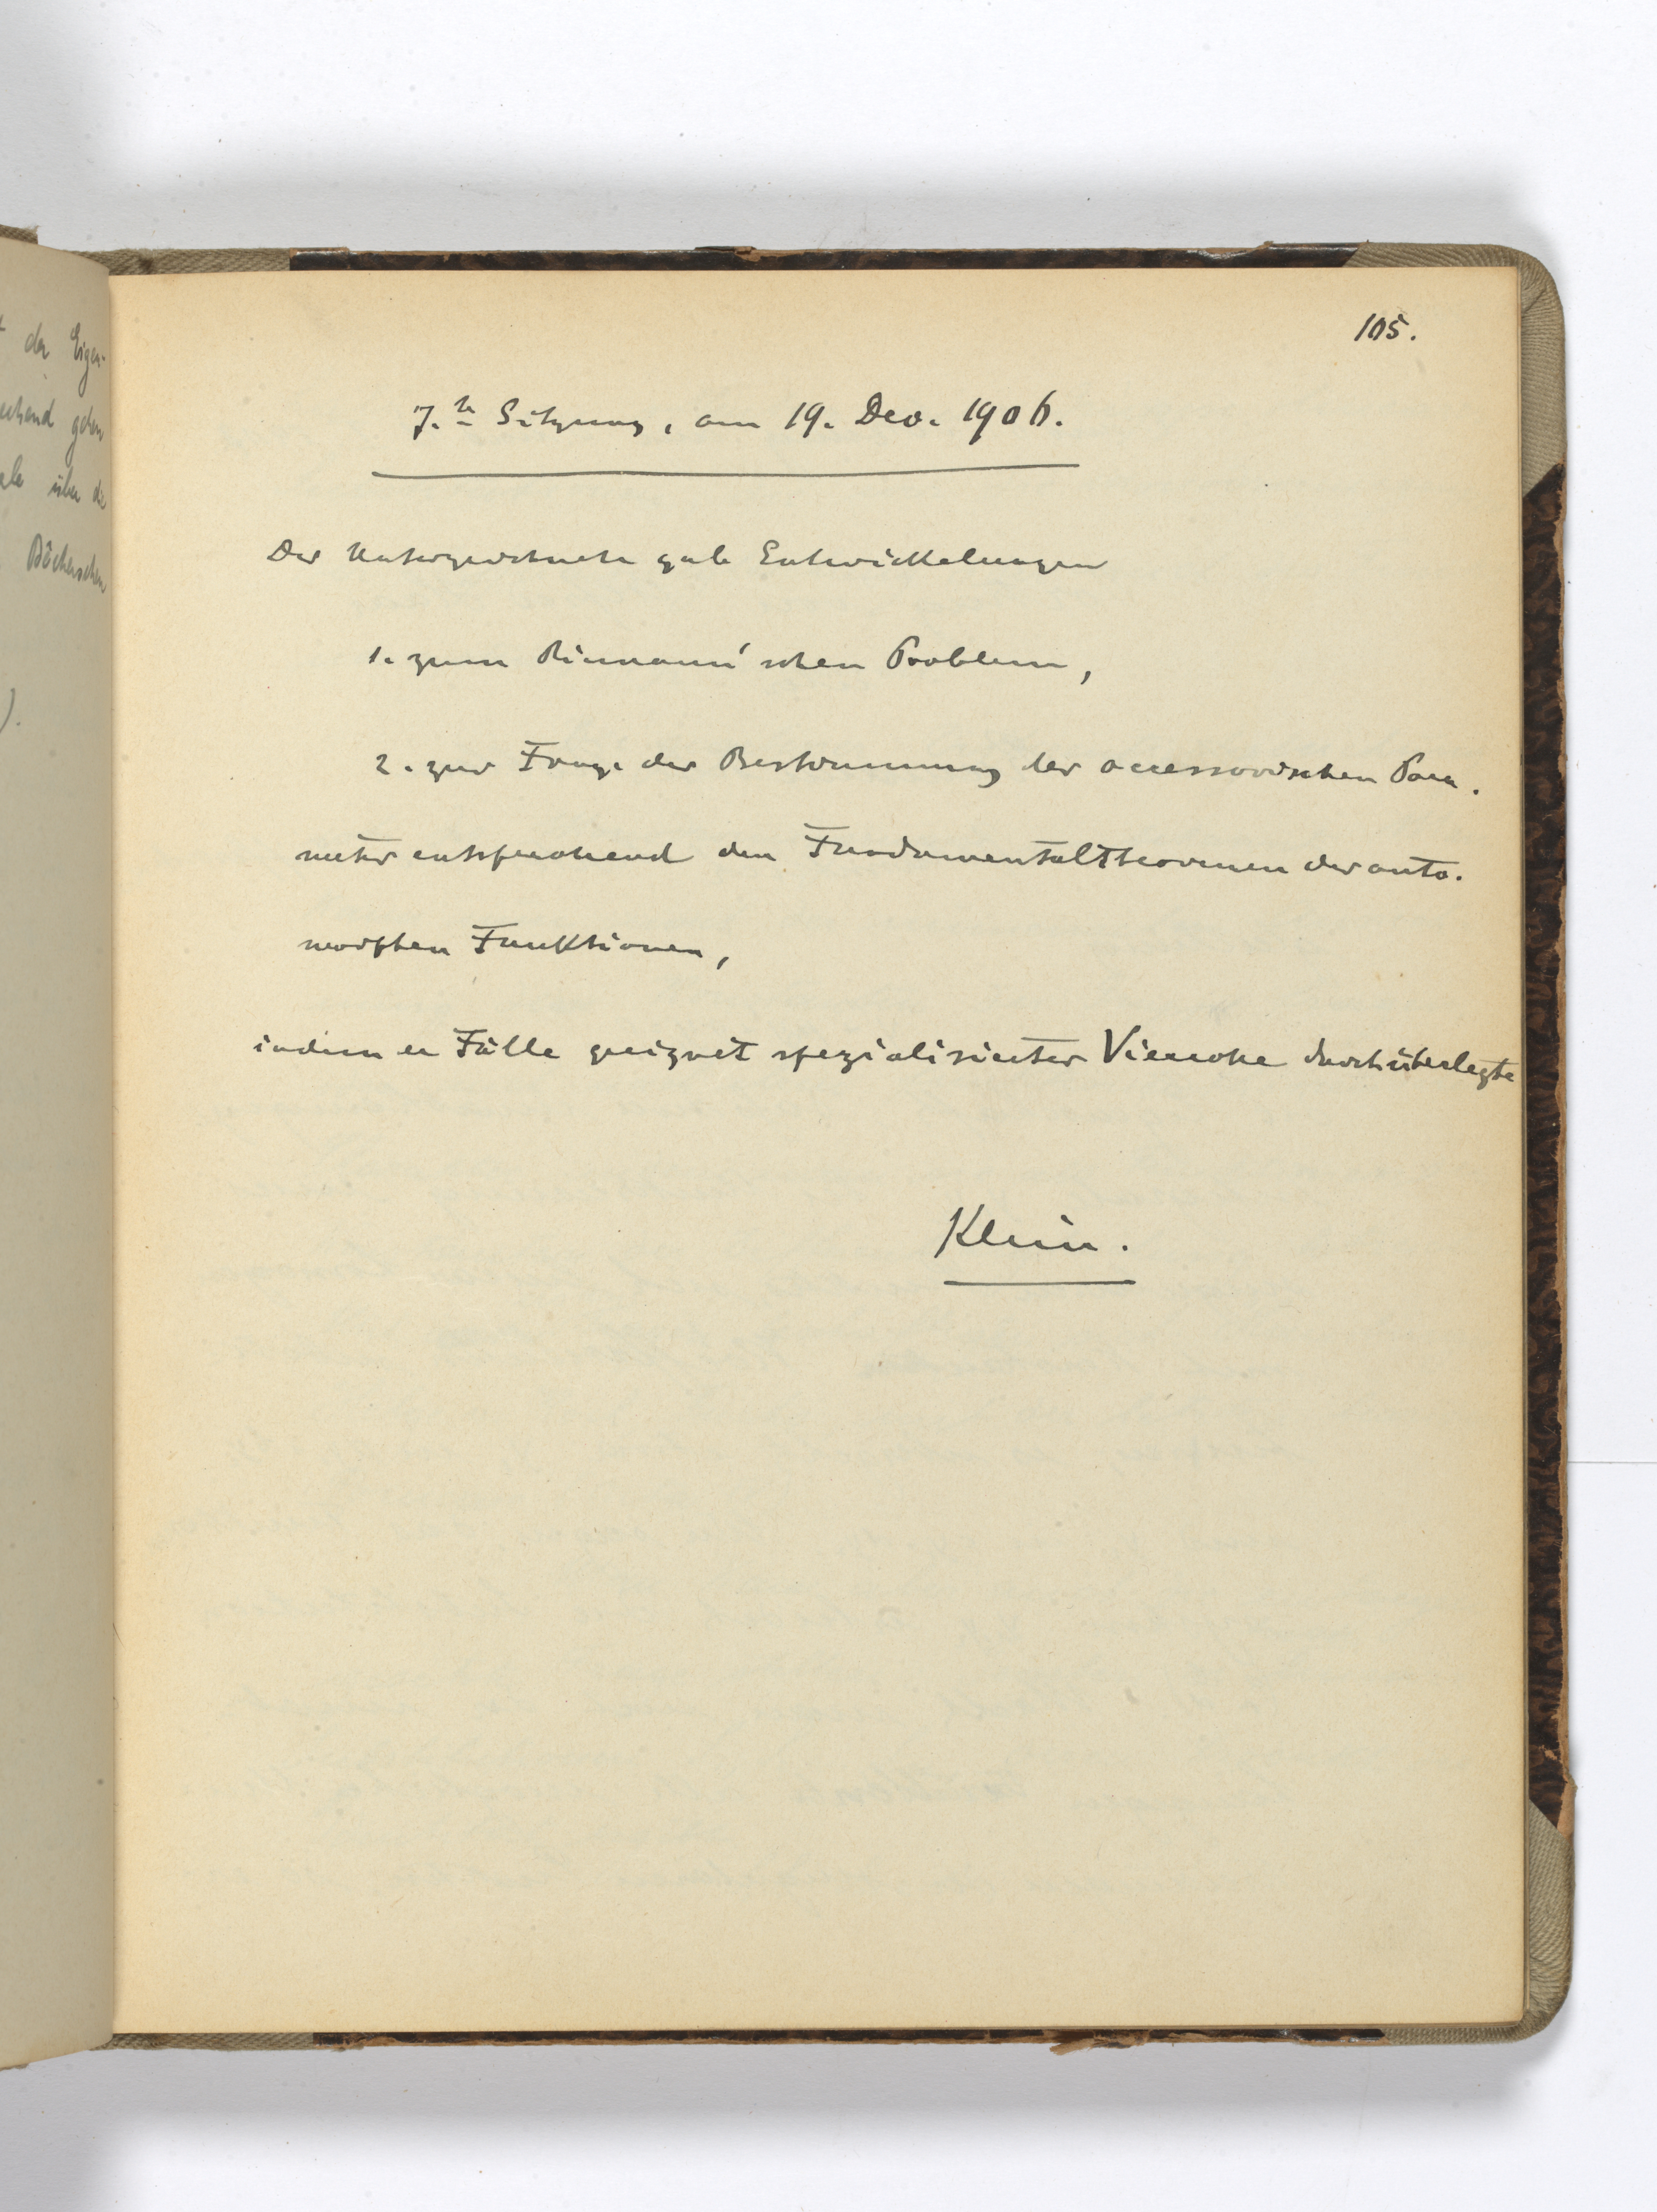 105.
7.te Sitzung, am 19. Dec. 1906.
Der Unterzeichnete gab Entwickelungen
1. zum Riemann'schen Problem,
2. zur Frage der Bestimmung der accessorischen Para-
meter entsprechend den Fundamentaltheoremen der auto-
morphen Funktionen,
indem er Fälle geeignet spezialisierter Vierecke durchüberlegte
Klein.
der Eigen-
gehen
über die
Bôcherschen
).